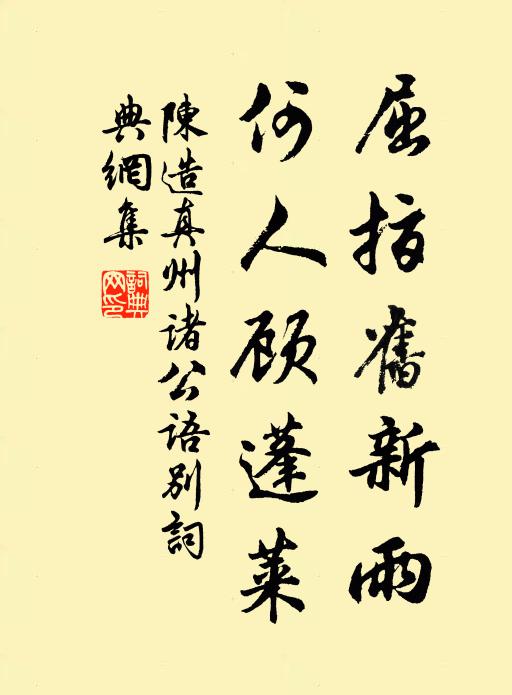 屈指舊新雨
何人顾蓬莱
陳造真州诸公语别詞
典網集
詞典
网印